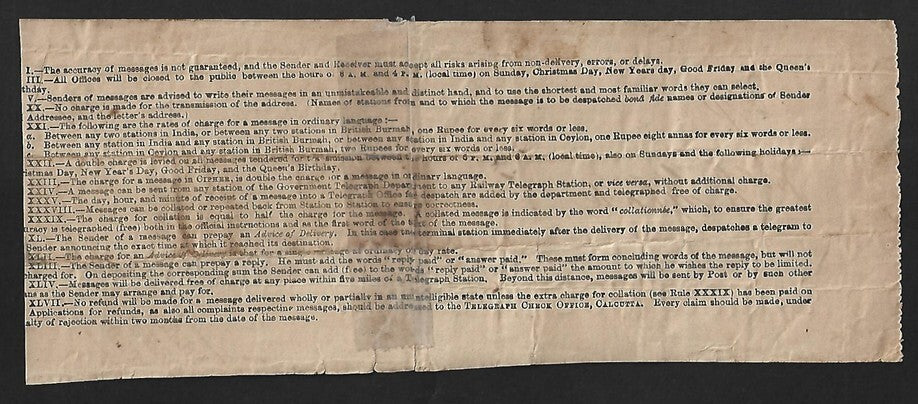 I.—The accuracy of messages is not guaranteed, and the Sender and Receiver must accept all risks arising from non-delivery, errors, or delays.
III.—All Offices will be closed to the public between the hours of 6 A. M. and 4 P. M. (local time) on Sunday, Christmas Day, New Years day, Good Friday and the Queen's
thday.
V.—Senders of messages are advised to write their messages in an unmistakeable and distinct hand, and to use the shortest and most familiar words they can select.
XX.—No charge is made for the transmission of the address. (Names of stations from and to which the message is to be despatched bond fide names or designations of Sender
Addressee, and the letter's address.)
XXI.—The following are the rates of charge for a message in ordinary language :—
a. Between any two stations in India, or between any two stations in British Burmah, one Rupee for every six words or less.
b. Between any station in India and any station in British Burmah, or between any station in India and any station in Ceylon, one Rupee eight annas for every six words or less.
c. Between any station in Ceylon and any station in British Burmah, two Rupees for every six words or less.
XXII.—A double charge is levied on all messages tendered for transmission between hours of 6 P. M. and 6 A. M. (local time), also on Sundays and the following holidays :—
istmas Day, New Year's Day, Good Friday, and the Queen's Birthday.
XXIII.—The charge for a message in CIPHER, is double the charge for a message in ordinary language.
XXIV.—A message can be sent from any station of the Government Telegraph Department to any Railway Telegraph Station, or vice versa, without additional charge.
XXXV.—The day, hour, and minute of receipt of a message into a Telegraph Office for despatch are added by the department and telegraphed free of charge.
XXXVIII.—Messages can be collated or repeated back from Station to Station to ensure correctness.
XXXIX.—The charge for collation is equal to half the charge for the message. A collated message is indicated by the word "collationnée," which, to ensure the greatest
uracy is telegraphed (free) both in the official instructions and as the first word of the text of the message.
XL.—The Sender of a message can prepay an Advice of Delivery. In this case the terminal station immediately after the delivery of the message, despatches a telegram to
Sender announcing the exact time at which it reached its destination.
XLII.—The charge for an Advice of Delivery is that for a single message at ordinary day rate.
XLIII.—The Sender of a message can prepay a reply. He must add the words "reply paid" or "answer paid." These must form concluding words of the message, but will not
charged for. On depositing the corresponding sum the Sender can add (free) to the words "reply paid" or "answer paid" the amount to which he wishes the reply to be limited.
XLIV.—Messages will be delivered free of charge at any place within five miles of a Telegraph Station. Beyond this distance, messages will be sent by Post or by such other
ans as the Sender may arrange and pay for.
XLVII.—No refund will be made for a message delivered wholly or partially in an unintelligible state unless the extra charge for collation (see Rule XXXIX) has been paid on
Applications for refunds, as also all complaints respecting messages, should be addressed to the TELEGRAPH CHECK OFFICE, CALCUTTA. Every claim should be made, under
alty of rejection within two months from the date of the message.